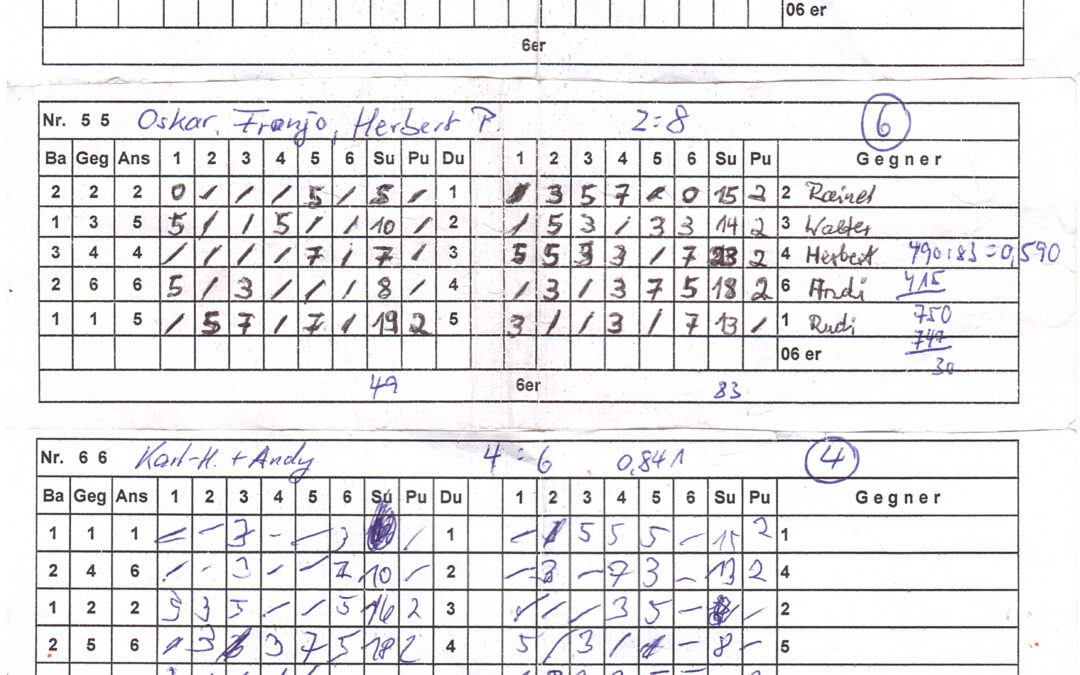 06 er
6er
Nr. 5 5 Oskar, Franjo, Herbert P. 2:8 6
Ba Geg Ans 1 2 3 4 5 6 Su Pu Du 1 2 3 4 5 6 Su Pu Gegner
2 2 2 0 / / / 5 / 5 / 1 3 5 7 0 15 2 2 Rainer
1 3 5 5 / / 5 / / 10 / 2 / 5 3 / 3 3 14 2 3 Walter
3 4 4 / / / / 7 / 7 / 3 5 5 3 3 / 7 23 2 4 Herbert 490:83=0,590
2 6 6 5 / 3 / / / 8 / 4 / 3 / 3 7 5 18 2 6 Andi 415
1 1 5 / 5 7 / 7 / 19 2 5 3 / / 3 / 7 13 / 1 Rudi 750
06 er 747
30
49 6er 83
Nr. 6 6 Karl-H. + Andy 4:6 0,841 4
Ba Geg Ans 1 2 3 4 5 6 Su Pu Du 1 2 3 4 5 6 Su Pu Gegner
1 1 1 - - 3 - - 3 / 1 - 5 5 5 - 15 2 1
2 4 6 / - 3 / - 7 10 - 2 - 3 - 7 3 - 13 2 4
1 2 2 3 3 5 - / 5 16 2 3 / / / 3 5 - 8 - 2
2 5 6 / 3 3 7 5 18 2 4 5 / 3 / - 8 - 5